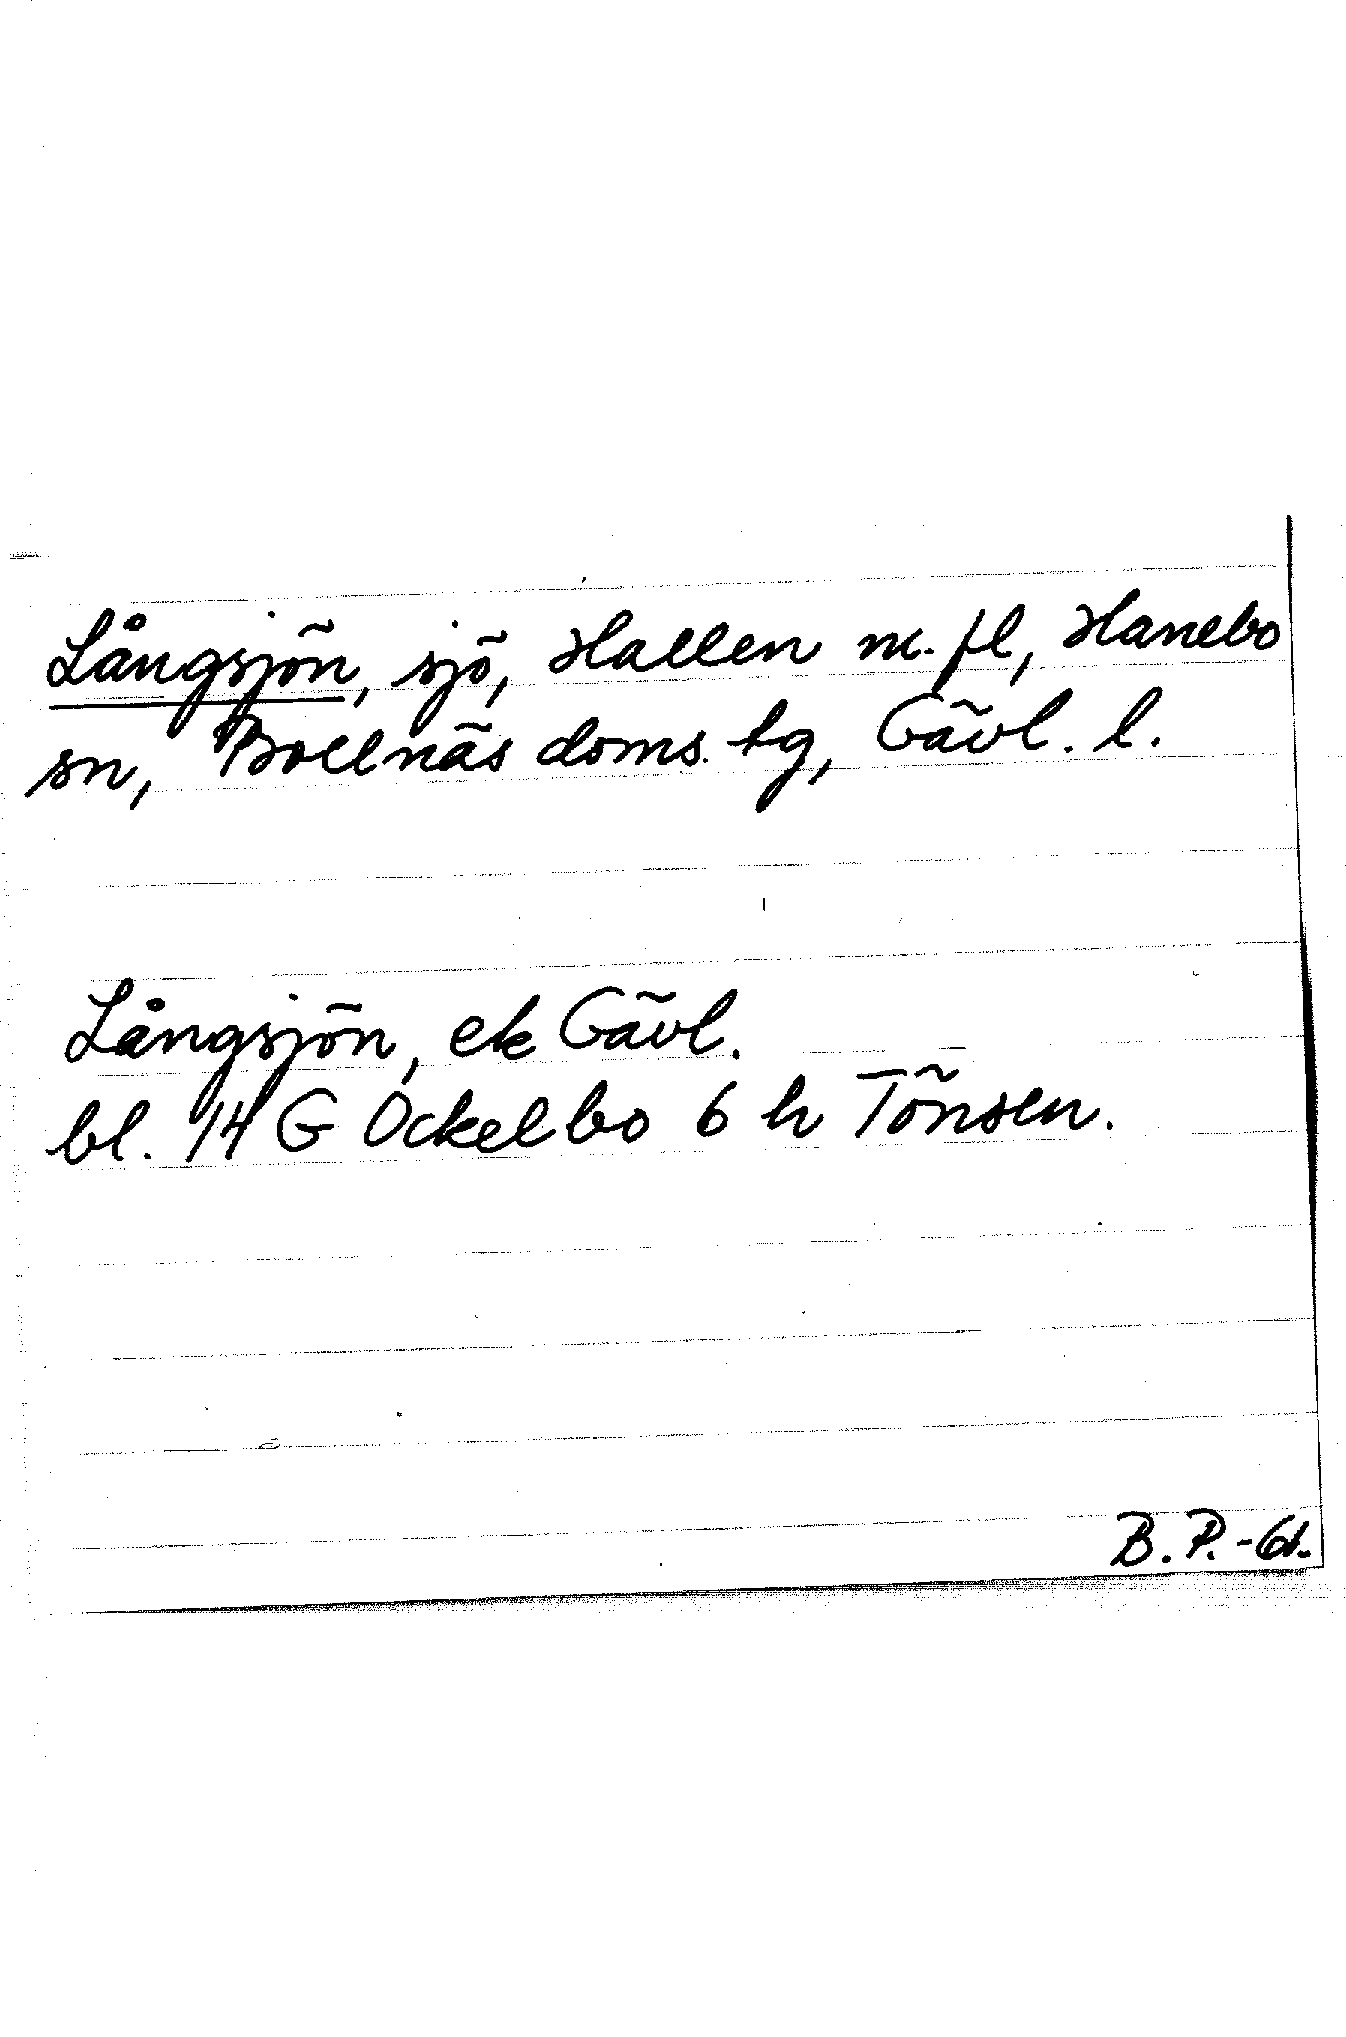 Långsjön, sjö, Hallen m. fl, Hanebo
sn, Bollnäs doms. tg, Gävl. l.
Långsjön, ek Gävl.
bl. 14 G Ockelbo 6 h Tönsen.
B. P. -61.